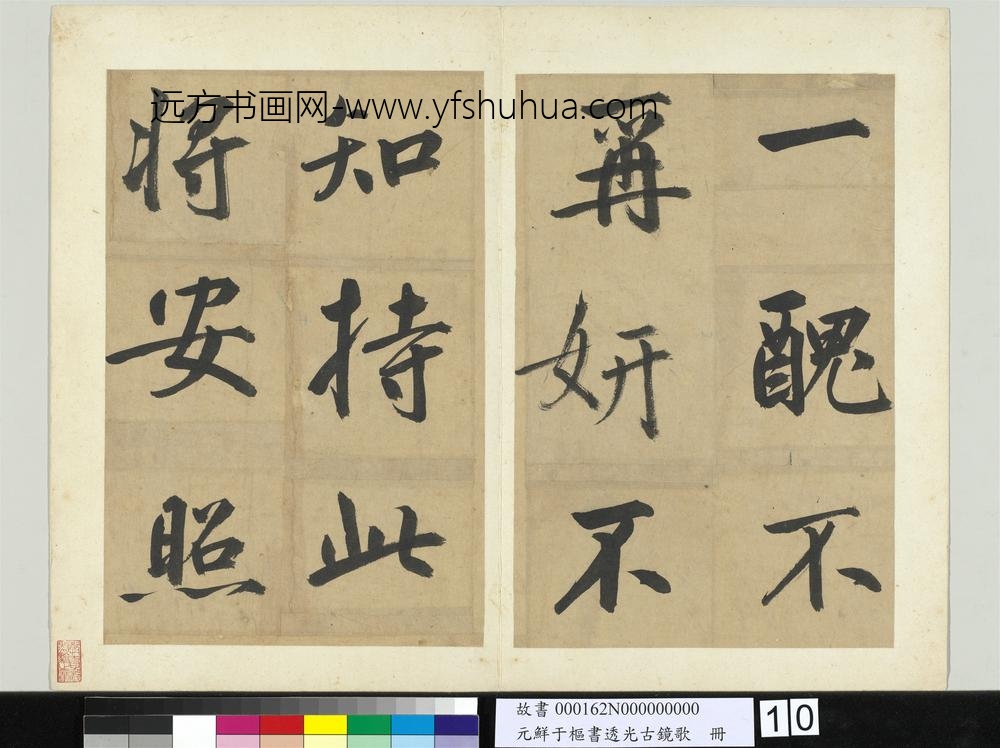 远方书画网-www.yfshuhua.com
一醜不
再妍不
知持此
將安照
故書 000162N000000000
元鮮于樞書透光古鏡歌 冊
10